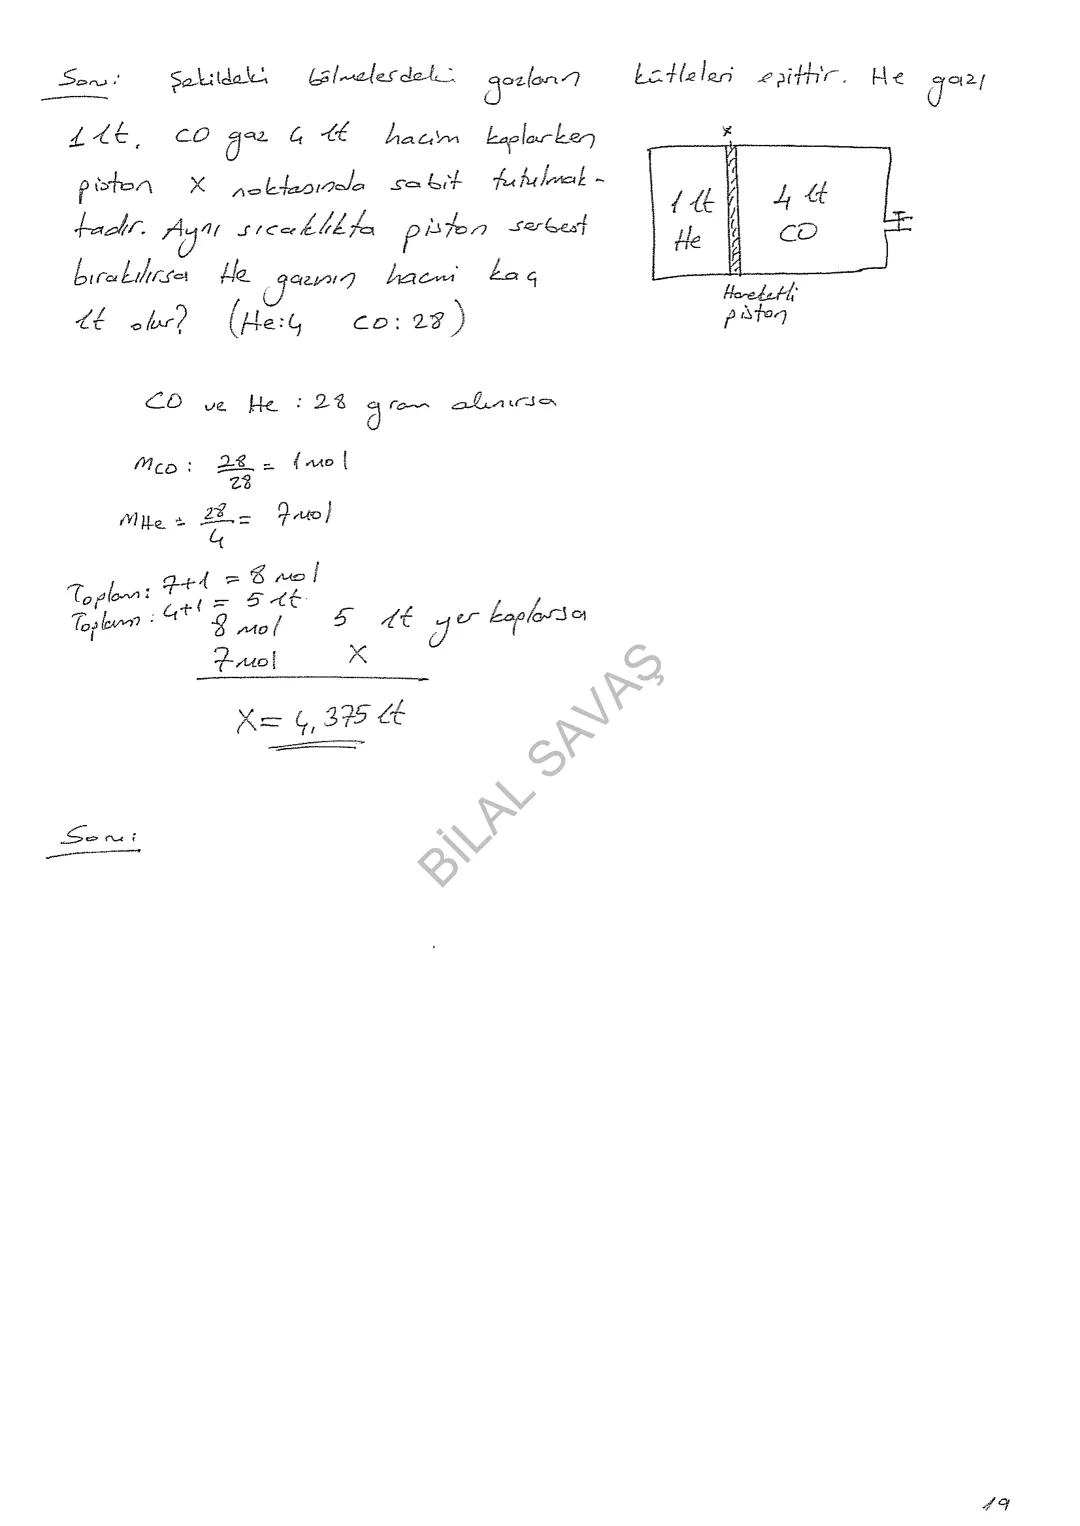 Soru: Şekildeki bölmelerdeki gazların kütleleri eşittir. He gazı
1 lt, CO gaz 4 lt hacim kaplarken
piston X noktasında sabit tutulmak-
tadır. Aynı sıcaklıkta piston serbest
bırakılırsa He gazının hacmi kaç
lt olur? (He:4 CO:28)
x
1 lt
He
4 lt
CO
Hareketli
piston
CO ve He : 28 gram alınırsa
MCO : 28/28 = 1 mol
MHe = 28/4 = 7 mol
Toplam: 7+1 = 8 mol
Toplam: 4+1 = 5 lt
8 mol 5 lt yer kaplarsa
7 mol X
X = 4,375 lt
BİLAL SAVAŞ
Soru:
19